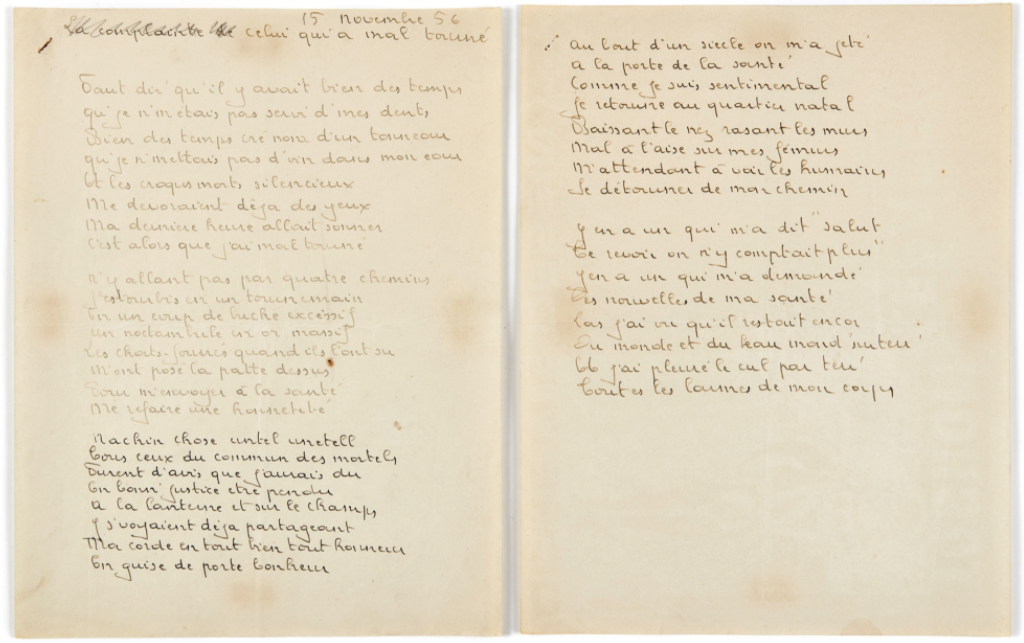 15 novembre 56
La complainte de celui qui a mal tourné
Faut dir' qu'il y avait bien des temps
qu'je n'm'étais pas servi d'mes dents
Bien des temps cré nom d'un tonneau
qu'je n'mettais pas d'vin dans mon eau
Et les croqu'morts silencieux
Me dévoraient déja des yeux
Ma dernière heure allait sonner
C'est alors que j'ai mal tourné
N'y allant pas par quatre chemins
J'estourbis en un tournemain
En un coup de buche excessif
un noctambule en or massif
Les chats-fourrés quand ils l'ont su
M'ont posé la patte dessus
Pour m'envoyer à la santé
Me refaire une honnêteté
Machin chose untel unetell
Tous ceux du commun des mortels
Furent d'avis que j'aurais du
En bonn' justice etre pendu
A la lanterne et sur le champs
Y s'voyaient déja partageant
Ma corde en tout bien tout honneur
En guise de porte bonheur
Au bout d'un siecle on m'a jeté
A la porte de la santé
Comme je suis sentimental
Je retourne au quartier natal
Baissant le nez rasant les murs
Mal à l'aise sur mes fémurs
M'attendant à voir les humains
Se détourner de mon chemin
Y en a un qui m'a dit "salut
Te revoir on n'y comptait plus"
Y en a un qui m'a demandé
Des nouvelles de ma santé
Lors j'ai vu qu'il restait encor
Du monde et du beau mond' sur terr'
Et j'ai pleuré le cul par terr'
Toutes les larmes de mon corps